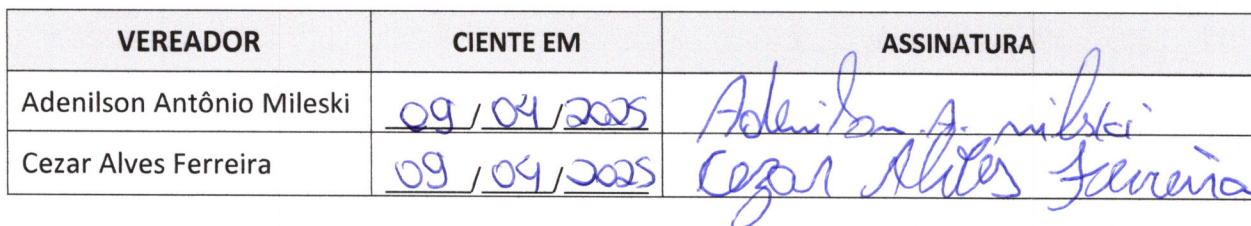 VEREADOR CIENTE EM ASSINATURA
Adenilson Antônio Mileski 09/04/2025 Adenilson A. Mileski
Cezar Alves Ferreira 09/04/2025 Cezar Alves Ferreira